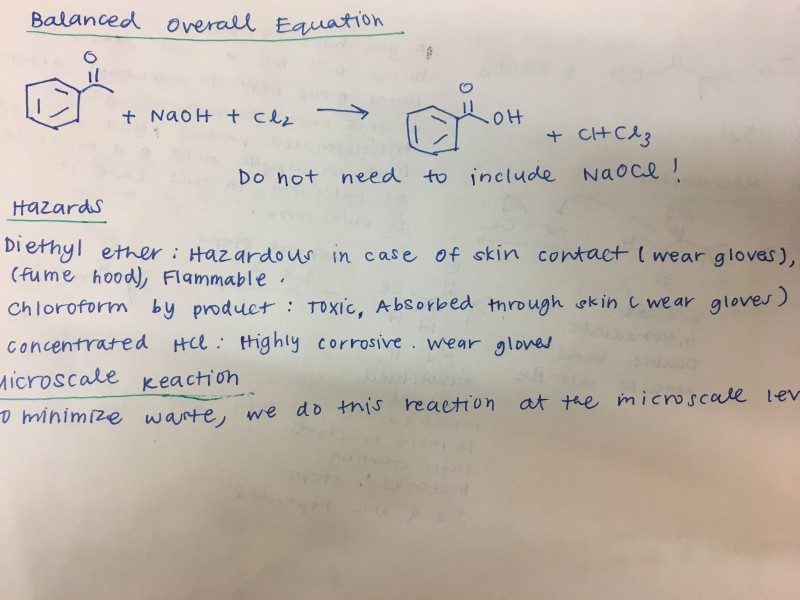 Balanced Overall Equation
O O
+ NaOH + Cl2 → OH + CHCl3
Do not need to include NaOCl!
Hazards
Diethyl ether: Hazardous in case of skin contact (wear gloves),
(fume hood), Flammable.
Chloroform by product: Toxic, Absorbed through skin (wear gloves)
Concentrated HCl: Highly corrosive. Wear gloves
Microscale Reaction
o minimize waste, we do this reaction at the microscale lev